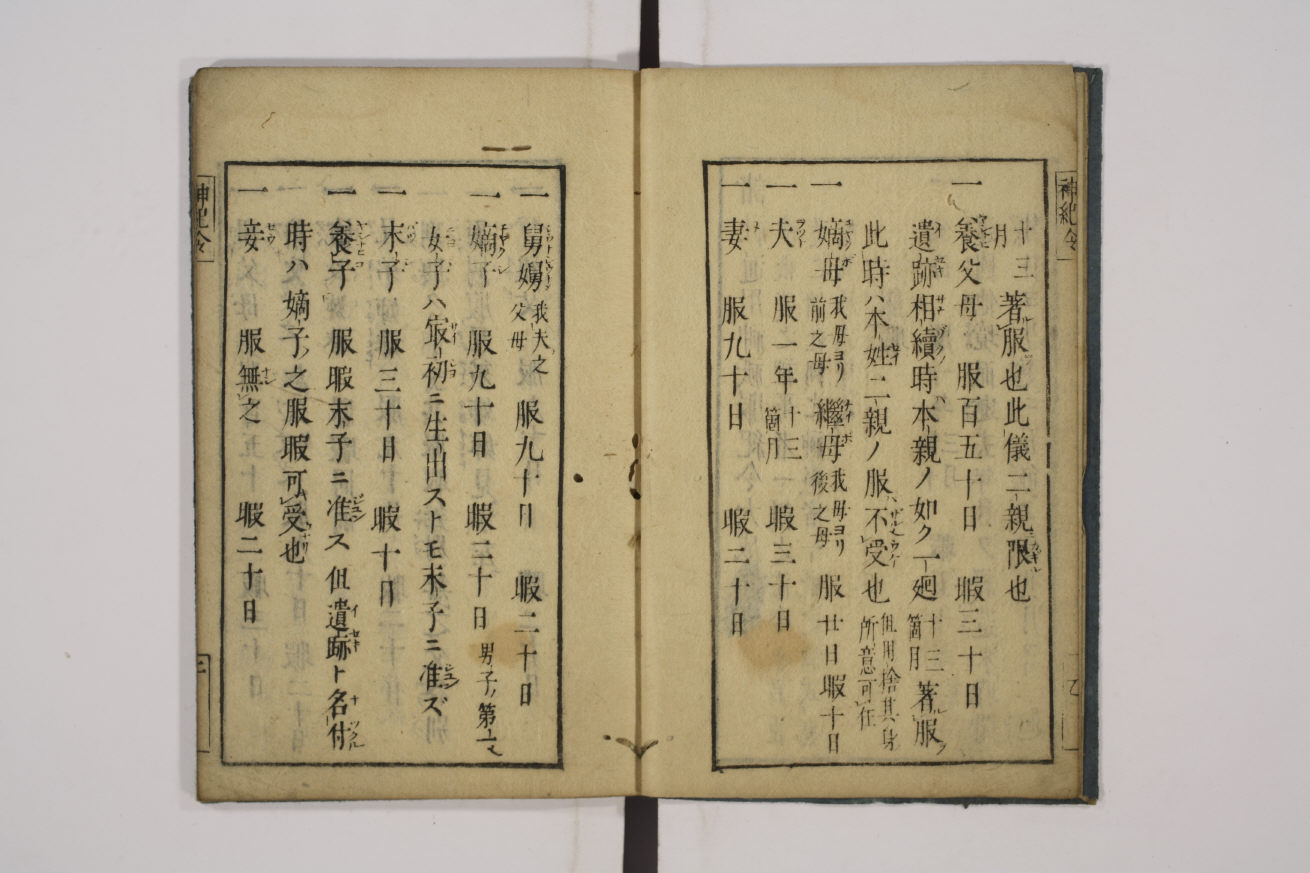 神紀令
十三月 著服也此儀二親限也
一 養父母 服百五十日 暇三十日
遺跡相續時ハ本親ノ如ク一廻 十三箇月 著服
此時ハ本姓二親ノ服不受也 但用捨其身所意可任
一 嫡母 我母ヨリ前之母 繼母 我母ヨリ後之母 服廿日暇十日
一 夫 服一年 十三箇月 暇三十日
一 妻 服九十日 暇二十日
一 舅嫂 我夫之父母 服九十日 暇二十日
一 嫡子 服九十日 暇二十日 男子ノ第一
女子ハ㝡初ニ生出ストモ末子ニ准ズ
一 末子 服三十日 暇十日
一 養子 服暇末子ニ准ス 但遺跡ト名付
時ハ嫡子ノ之服暇可受也
一 妾 服無之 暇二十日
神紀令